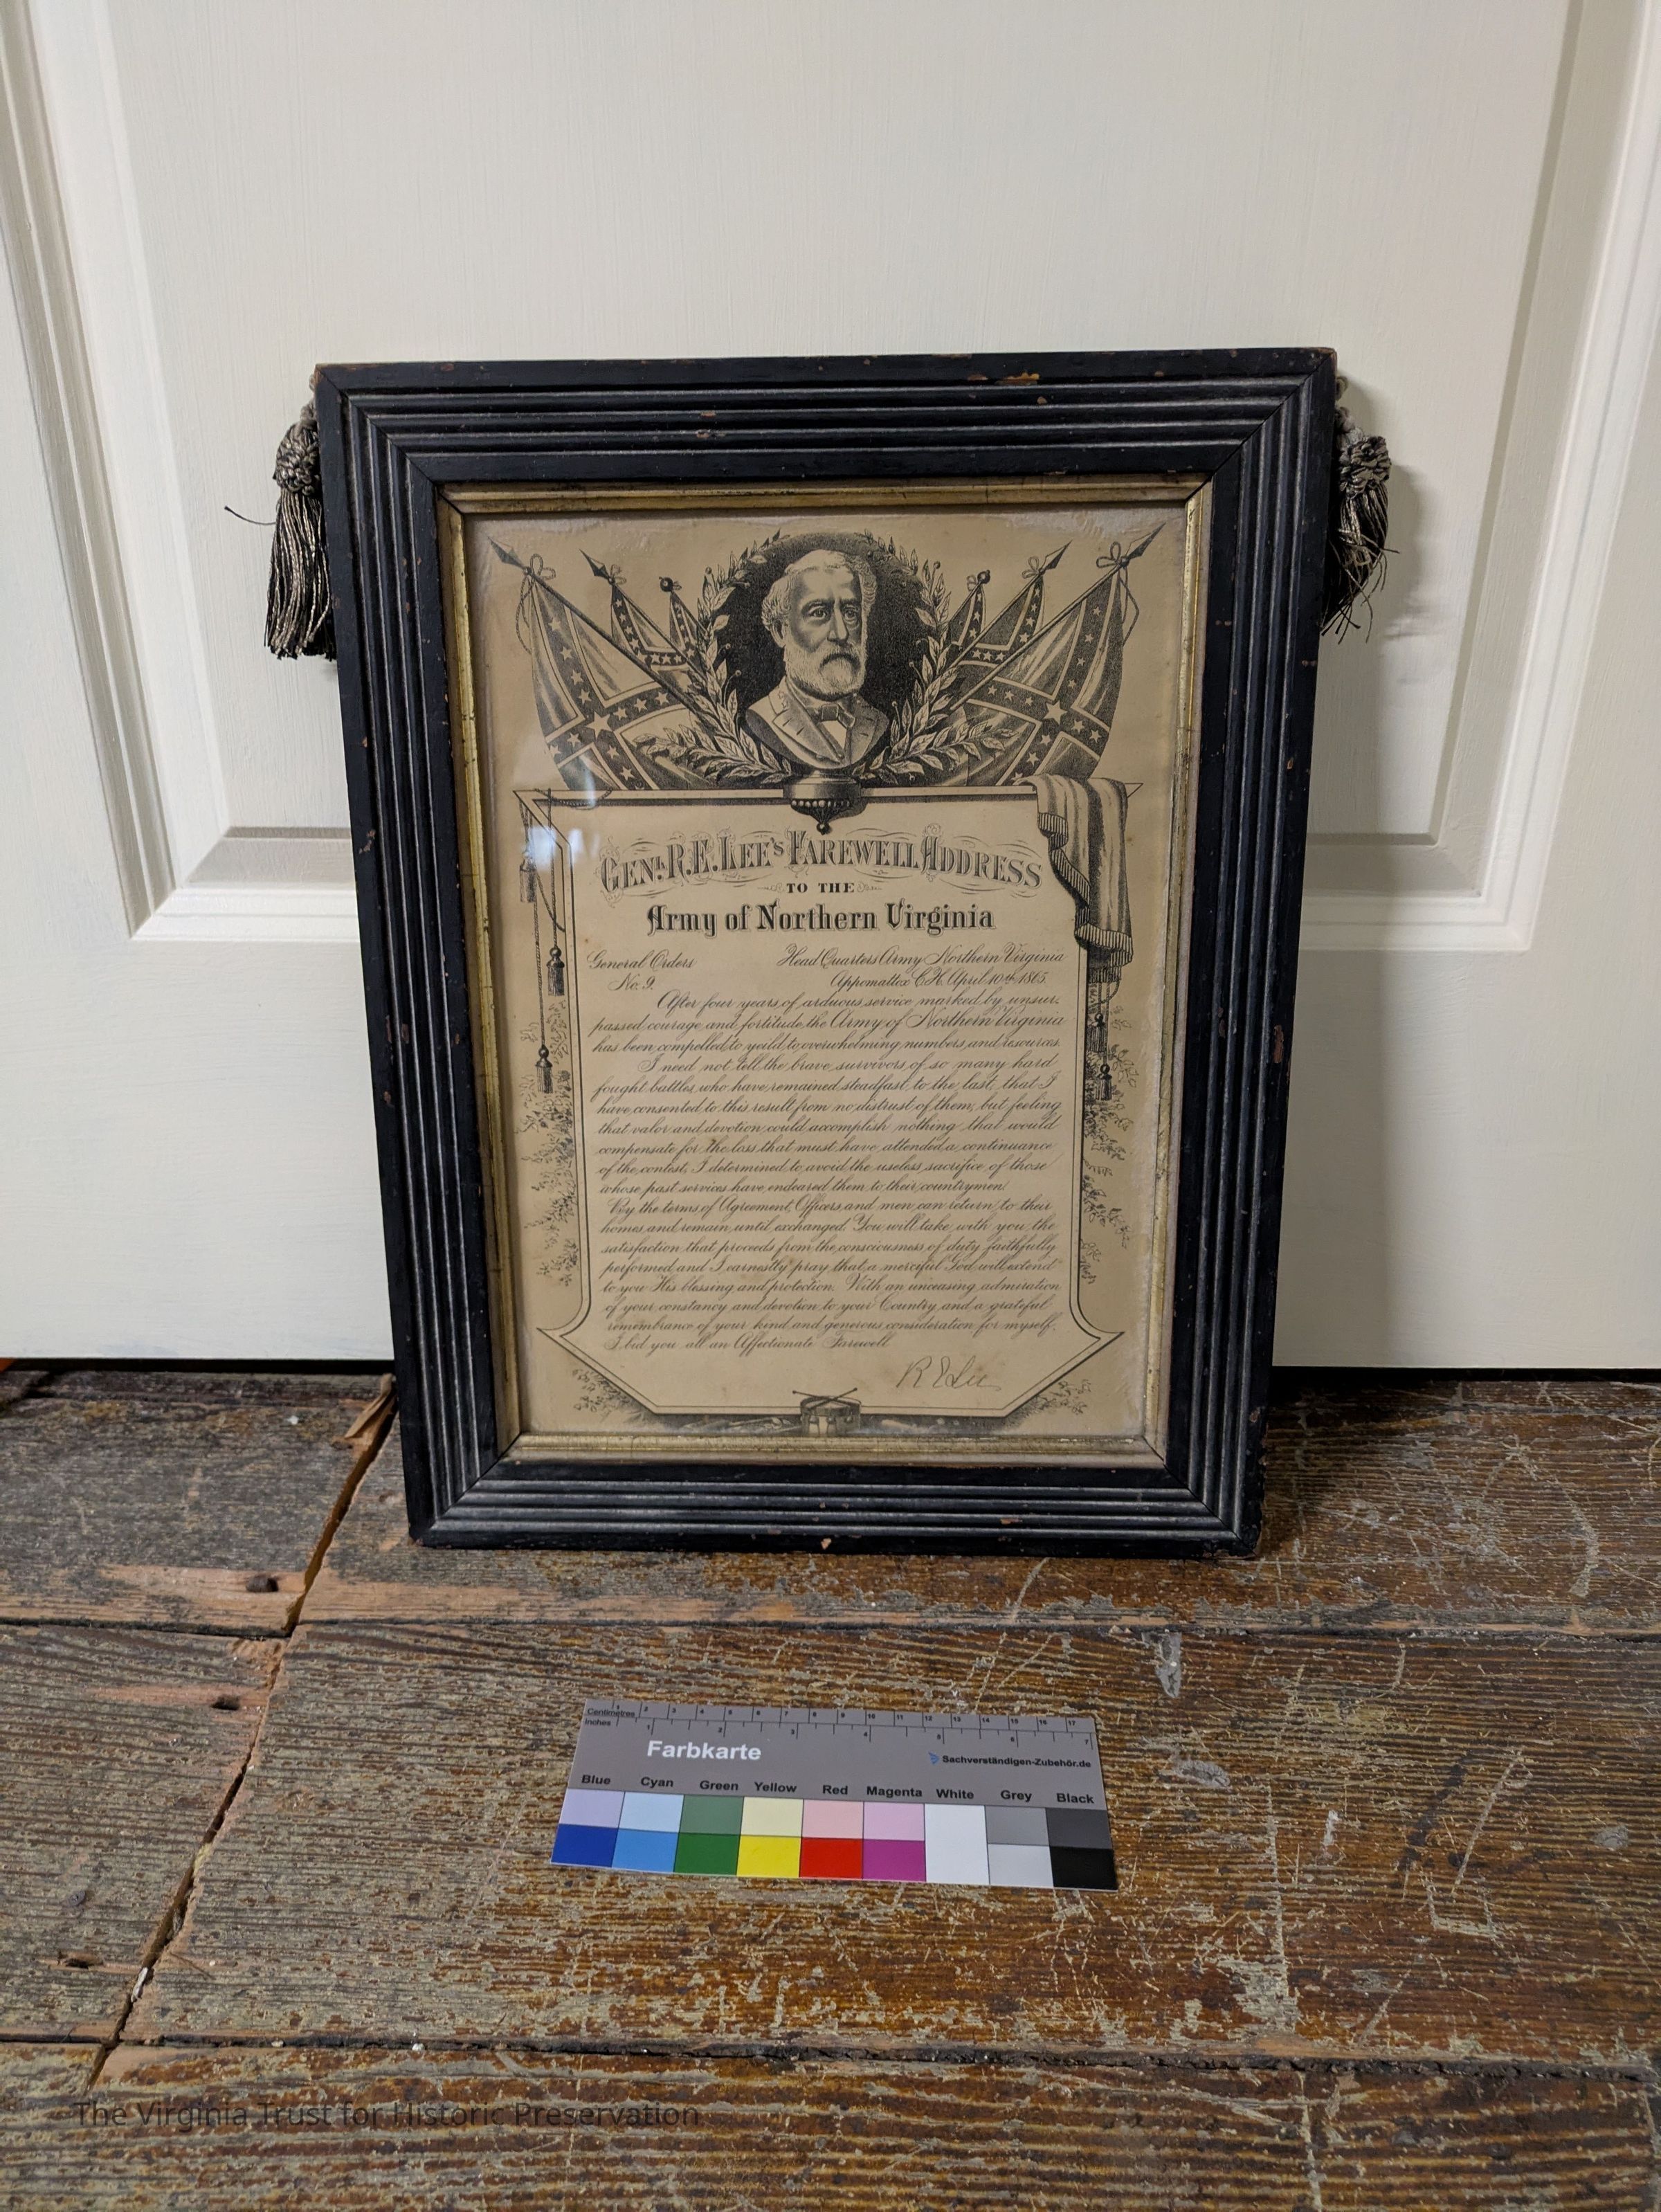 GENL. R.E. LEE'S FAREWELL ADDRESS
TO THE
Army of Northern Virginia
General Orders Head Quarters Army Northern Virginia
No. 9. Appomattox C.H. April 10th 1865.
After four years of arduous service marked by unsur-
passed courage and fortitude the Army of Northern Virginia
has been compelled to yeild to overwhelming numbers and resources.
I need not tell the brave survivors of so many hard
fought battles who have remained steadfast to the last, that I
have consented to this result from no distrust of them; but feeling
that valor and devotion could accomplish nothing that would
compensate for the loss that must have attended a continuance
of the contest, I determined to avoid the useless sacrifice of those
whose past services have endeared them to their countrymen.
By the terms of Agreement, Officers and men can return to their
homes and remain until exchanged. You will take with you the
satisfaction that proceeds from the consciousness of duty faithfully
performed and I earnestly pray that a merciful God will extend
to you His blessing and protection. With an unceasing admiration
of your constancy and devotion to your Country and a grateful
remembrance of your kind and generous consideration for myself.
I bid you all an Affectionate Farewell
R E Lee
Centimetres 1 2 3 4 5 6 7 8 9 10 11 12 13 14 15 16 17
Inches 1 2 3 4 5 6 7
Farbkarte Sachverständigen-Zubehör.de
Blue Cyan Green Yellow Red Magenta White Grey Black
The Virginia Trust for Historic Preservation